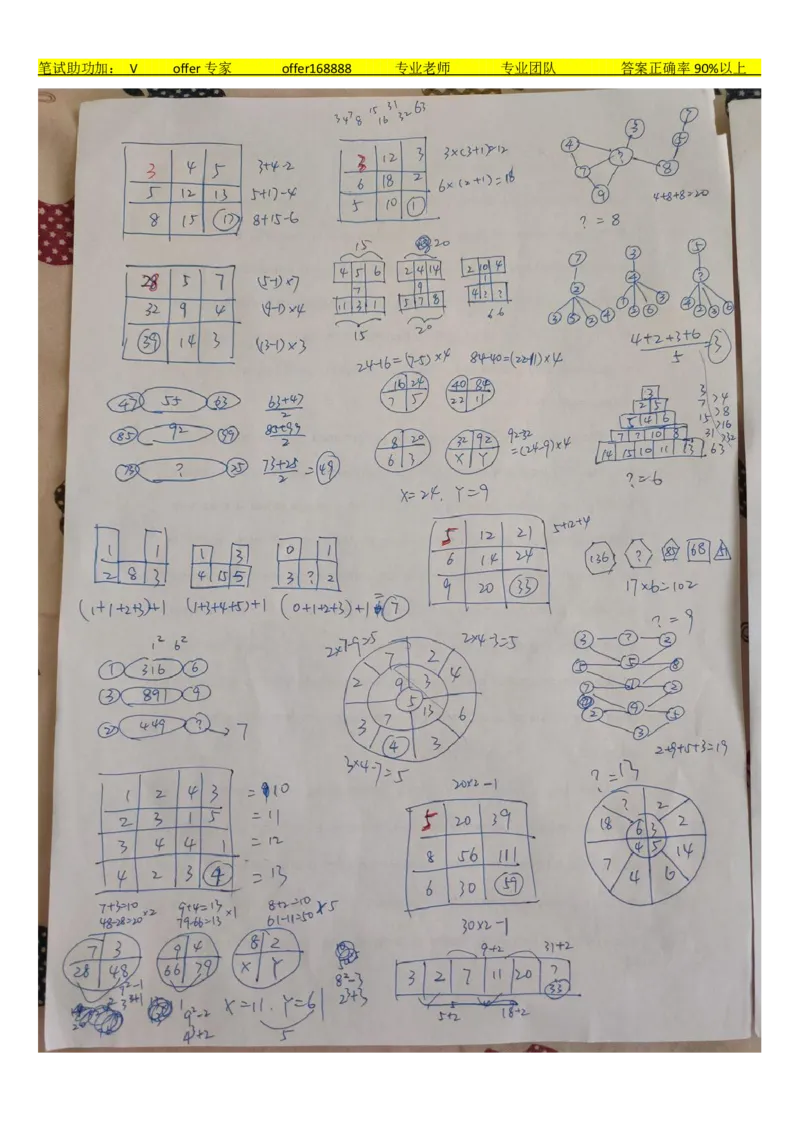 笔试助功加： V offer 专家 offer168888 专业老师 专业团队 答案正确率 90%以上
3 4 7 8 15 16 31 32 63
3 4 5 3+4-2
5 12 13 5+12-4
8 15 17 8+15-6
3 12 3 3×(3+1)=12
6 18 2 6×(2+1)=18
5 10 1
4 3 7 5 ? 7 8 9
4+8+8=20
? = 8
28 5 7 (5-1)×7
32 9 4 (9-1)×4
39 14 3 (14-1)×3
15 20
4 5 6 2 4 14 2 10 4
7 9
11 3 1 5 7 8 4 ? ?
15 20 6 6
7 3 5
2 4 ?
3 5 2 4 7 5 6 3 4 2 3 6
4+2+3+6
5 = 3
24-16=(7-5)×4 84-40=(22-11)×4
16 24 40 84
7 5 22 11
8 20 32 92 92-32
6 3 X Y =(24-9)×4
X=24. Y=9
47 55 63 63+47
2
85 92 99 85+99
2
73 ? 25 73+25
2 = 49
3 3
2 5 7 >4
5 4 6 15 >8
7 7 10 8 31 >16
14 15 10 11 13 63 >32
?=6
1 1 1 3 0 1
2 8 3 4 15 5 3 ? 2
(1+1+2+3)+1 (1+3+4+5)+1 (0+1+2+3)+1 = 7
5 12 21 5+12+4
6 14 24
9 20 33
136 ? 85 68 51
17×6=102
1² 6²
1 316 6
3 891 9
2 449 ? → 7
2×7-9=5 2×4-3=5
7 2 2 9 3 4 5 3 7 13 6 4 3
3×4-7=5
?=9
3 ? 2
5 5 8
7 6 2
2 9 5
3
2+9+5+3=19
1 2 4 3 = 10
2 3 1 5 = 11
3 4 4 1 = 12
4 2 3 4 = 13
20×2-1
5 20 39
8 56 111
6 30 59
30×2-1
?=13
? 2
18 6 3 2
7 4 5 14
4 6
7+3=10 9+4=13 8+2=10
48-28=20 ×2 79-66=13 ×1 61-11=50 ×5
7 3 9 4 8 2
28 48 66 79 X Y
X=11. Y=61
5
9²-2
4²+2
8²-3
2³+3
9+2 31+2
3 2 7 11 20 ?
33
5+2 18+2